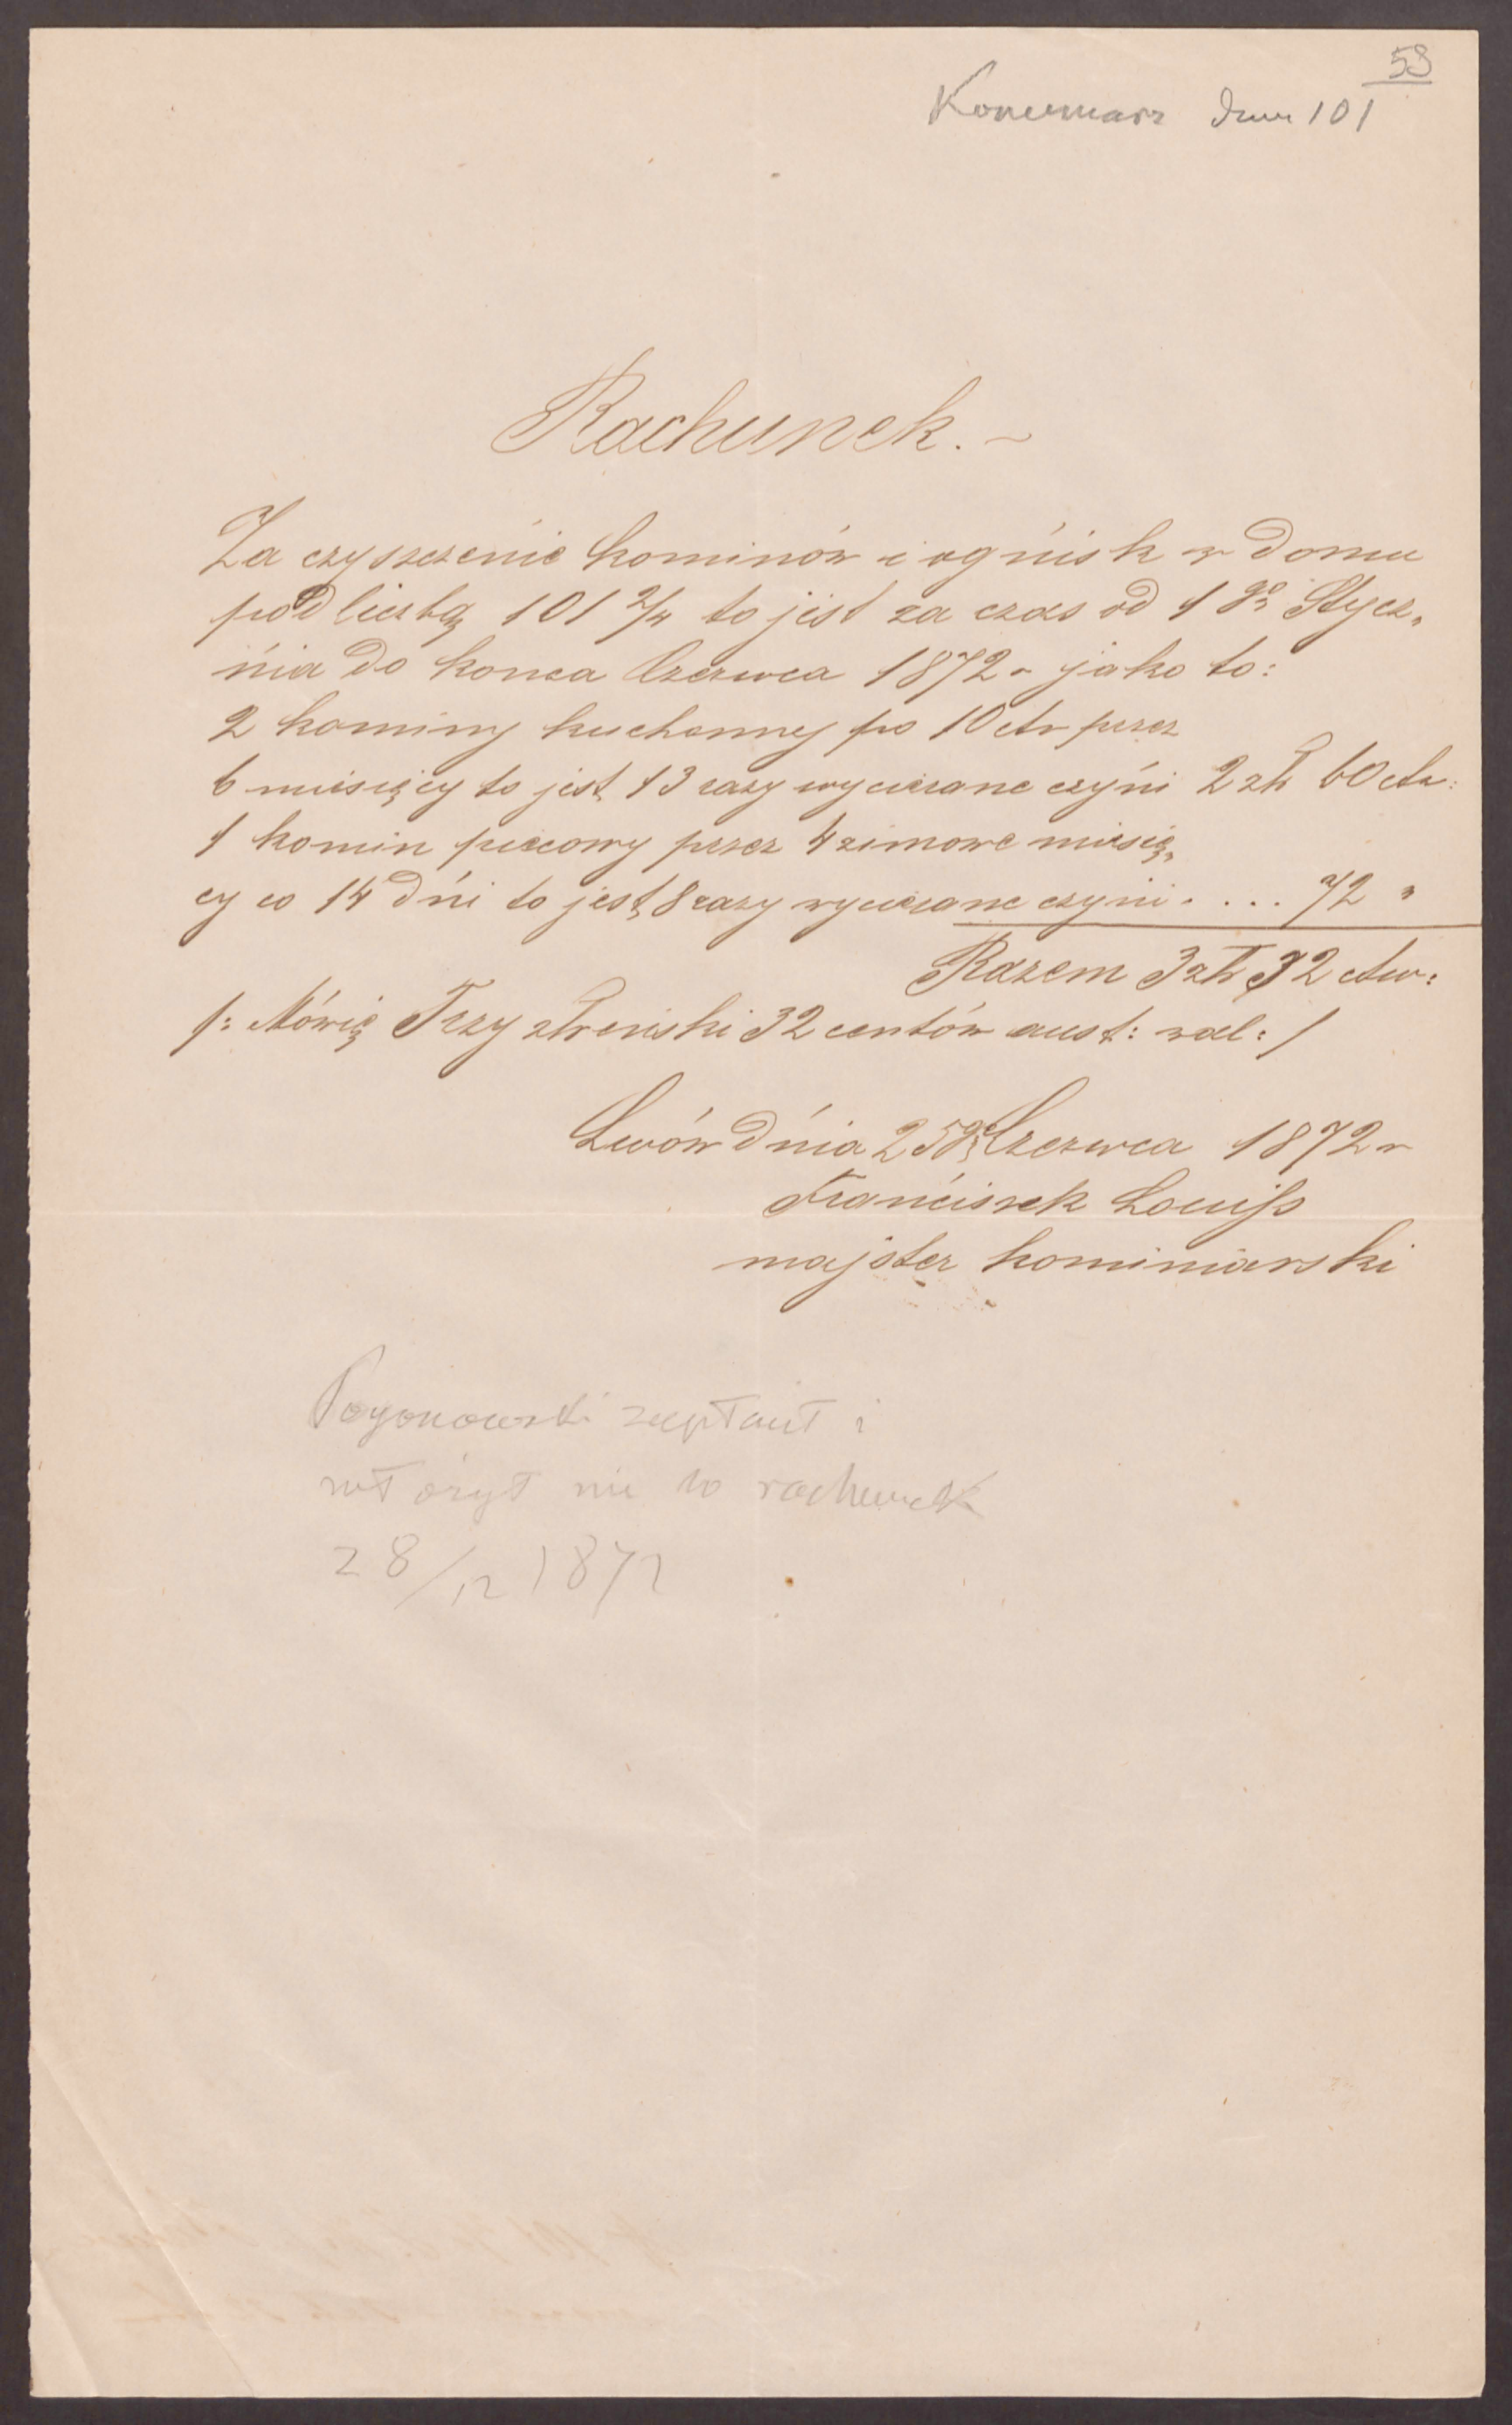 53
Kominiarz dom 101
Rachunek. ~
Za czyszczenie kominów i ognisk w domu
pod liczbą 101 2/4 to jest za czas od 1go Stycz„
nia do konca Czerwca 1872 r jako to:
2 kominy kuchenny po 10 ctr przez
6 miesięcy to jest 13 razy wycierane czyni 2 złr 60 ctn:
1 komin piecowy przez 4 zimowe miesię„
cy co 14 dni to jest 8 razy wycierane czyni . . . . 72 "
Razem 3 złr 32 ctw:
/: Mówię Trzy złreński 32 centów aust: wal: /
Lwów dnia 25go Czerwca 1872 r
Franciszek Louiss
majster kominiarski
Pogonowski zapłacił i
włożył mi to rachunek
28/12 1872